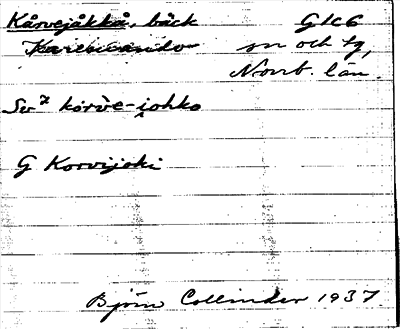 Kårvejåkkå, bäck GK6
Karesuando sn och tg,
Norrb. län.
Sv² kårve-johko
G Korvijoki
Björn Collinder 1937.